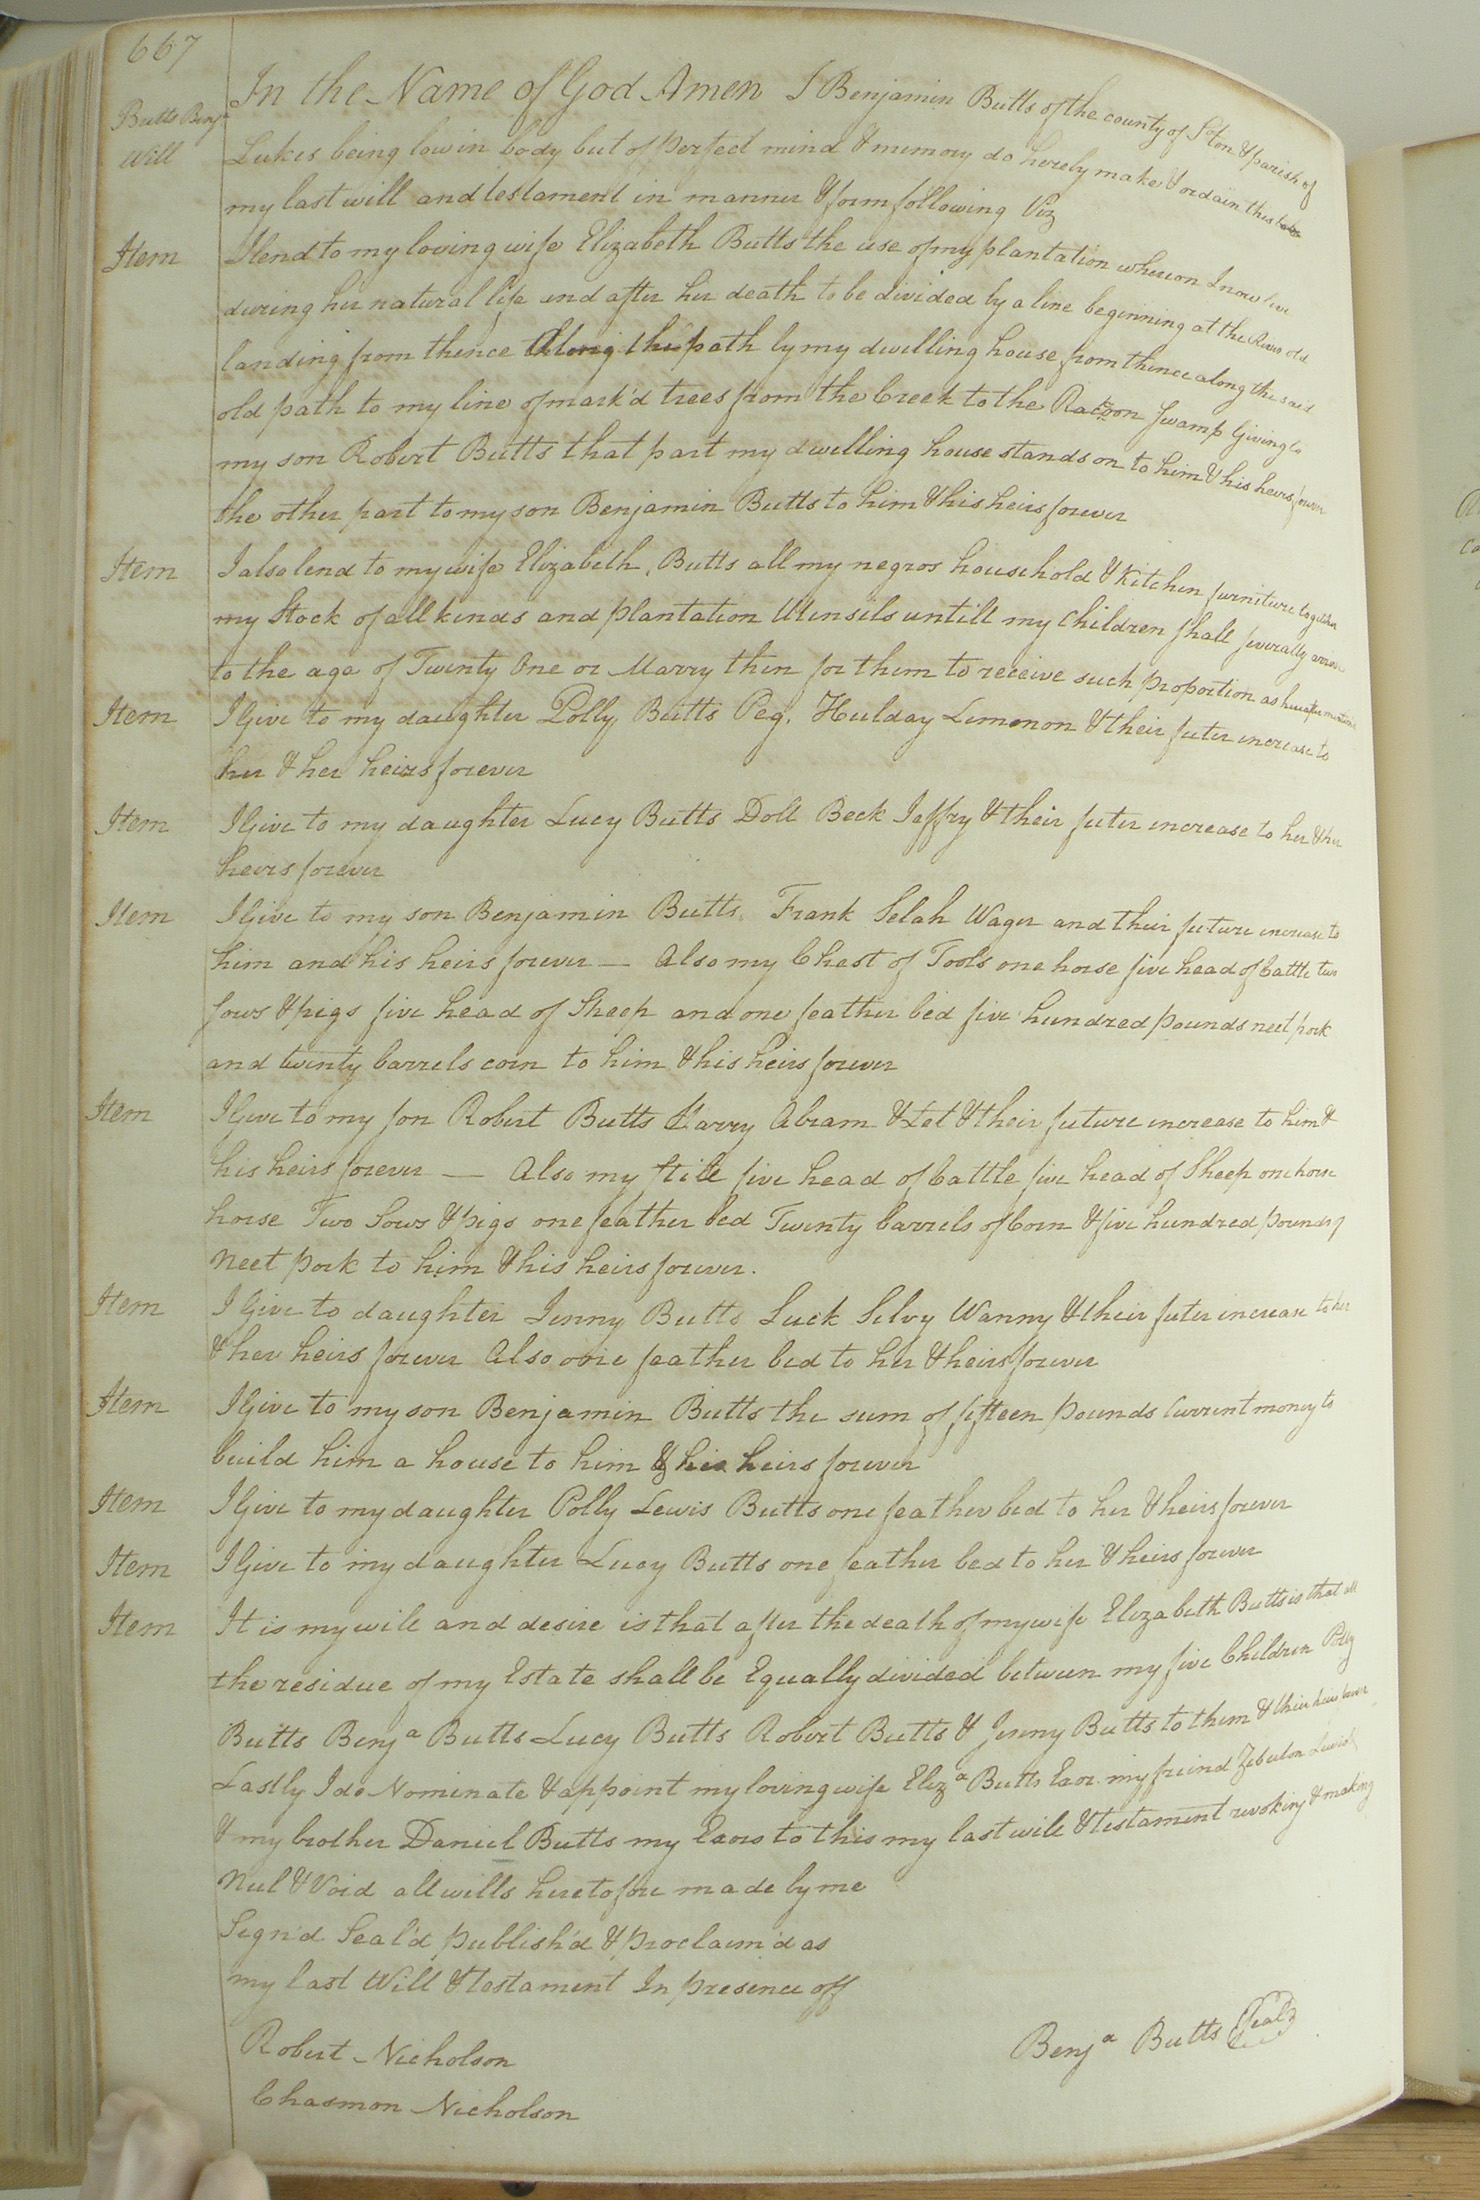 667
Butts Benja
Will
In the Name of God Amen I Benjamin Butts of the county of Soton & parish of
Lukes being low in body but of perfect mind & memory do hereby make & ordain this
my last will and testament in manner & form following Viz
Item I lend to my loving wife Elizabeth Butts the use of my plantation whereon I now live
during her natural life and after her death to be divided by a line beginning at the River old
landing from thence Along the path by my dwelling house from thence along the said
old path to my line of mark'd trees from the Creek to the Racoon Swamp Giving to
my son Robert Butts that part my dwelling house stands on to him & his heirs forever
the other part to my son Benjamin Butts to him & his heirs forever
Item I also lend to my wife Elizabeth Butts all my negros household & Kitchen furniture together
my Stock of all kinds and plantation Utensils untill my Children shall severally arrive
to the age of Twenty One or Marry then for them to receive such proportion as hereafter mention'd
Item I Give to my daughter Polly Butts Peg, Hulday Limonon & their futer increase to
her & her heirs forever
Item I Give to my daughter Lucy Butts Doll Beck Jaffry & their futer increase to her & her
heirs forever
Item I Give to my son Benjamin Butts Frank Selah Wager and their future increase to
him and his heirs forever — Also my Chest of Tools one horse five head of Cattle two
sows & pigs five head of Sheep and one feather bed five hundred pounds neet pork
and twenty barrels corn to him & his heirs forever
Item I Give to my son Robert Butts Harry Abram & Let & their future increase to him &
his heirs forever — Also my Still five head of Cattle five head of Sheep one horse
horse Two Sows & pigs one feather bed Twenty barrels of Corn & five hundred pounds of
Neet pork to him & his heirs forever.
Item I Give to daughter Jenny Butts Luck Silvy Wanny & their futer increase to her
& her heirs forever Also one feather bed to her & heirs forever
Item I Give to my son Benjamin Butts the sum of fifteen pounds Current money to
build him a house to him & his heirs forever
Item I Give to my daughter Polly Lewis Butts one feather bed to her & heirs forever
Item I Give to my daughter Lucy Butts one feather bed to her & heirs forever
Item It is my will and desire is that after the death of my wife Elizabeth Butts is that all
the residue of my Estate shall be Equally divided between my five Children Polly
Butts Benja Butts Lucy Butts Robert Butts & Jenny Butts to them & their heirs forever
Lastly I do Nominate & appoint my loving wife Eliza Butts Exor. my freind Zebulon Lewis
& my brother Daniel Butts my Exors to this my last will & testament revoking & making
Nul & Void all wills heretofore made by me
Sign'd Seal'd publish'd & proclaim'd as
my last Will & testament In presence off
Benja Butts Seal
Robert Nicholson
Chasmon Nicholson